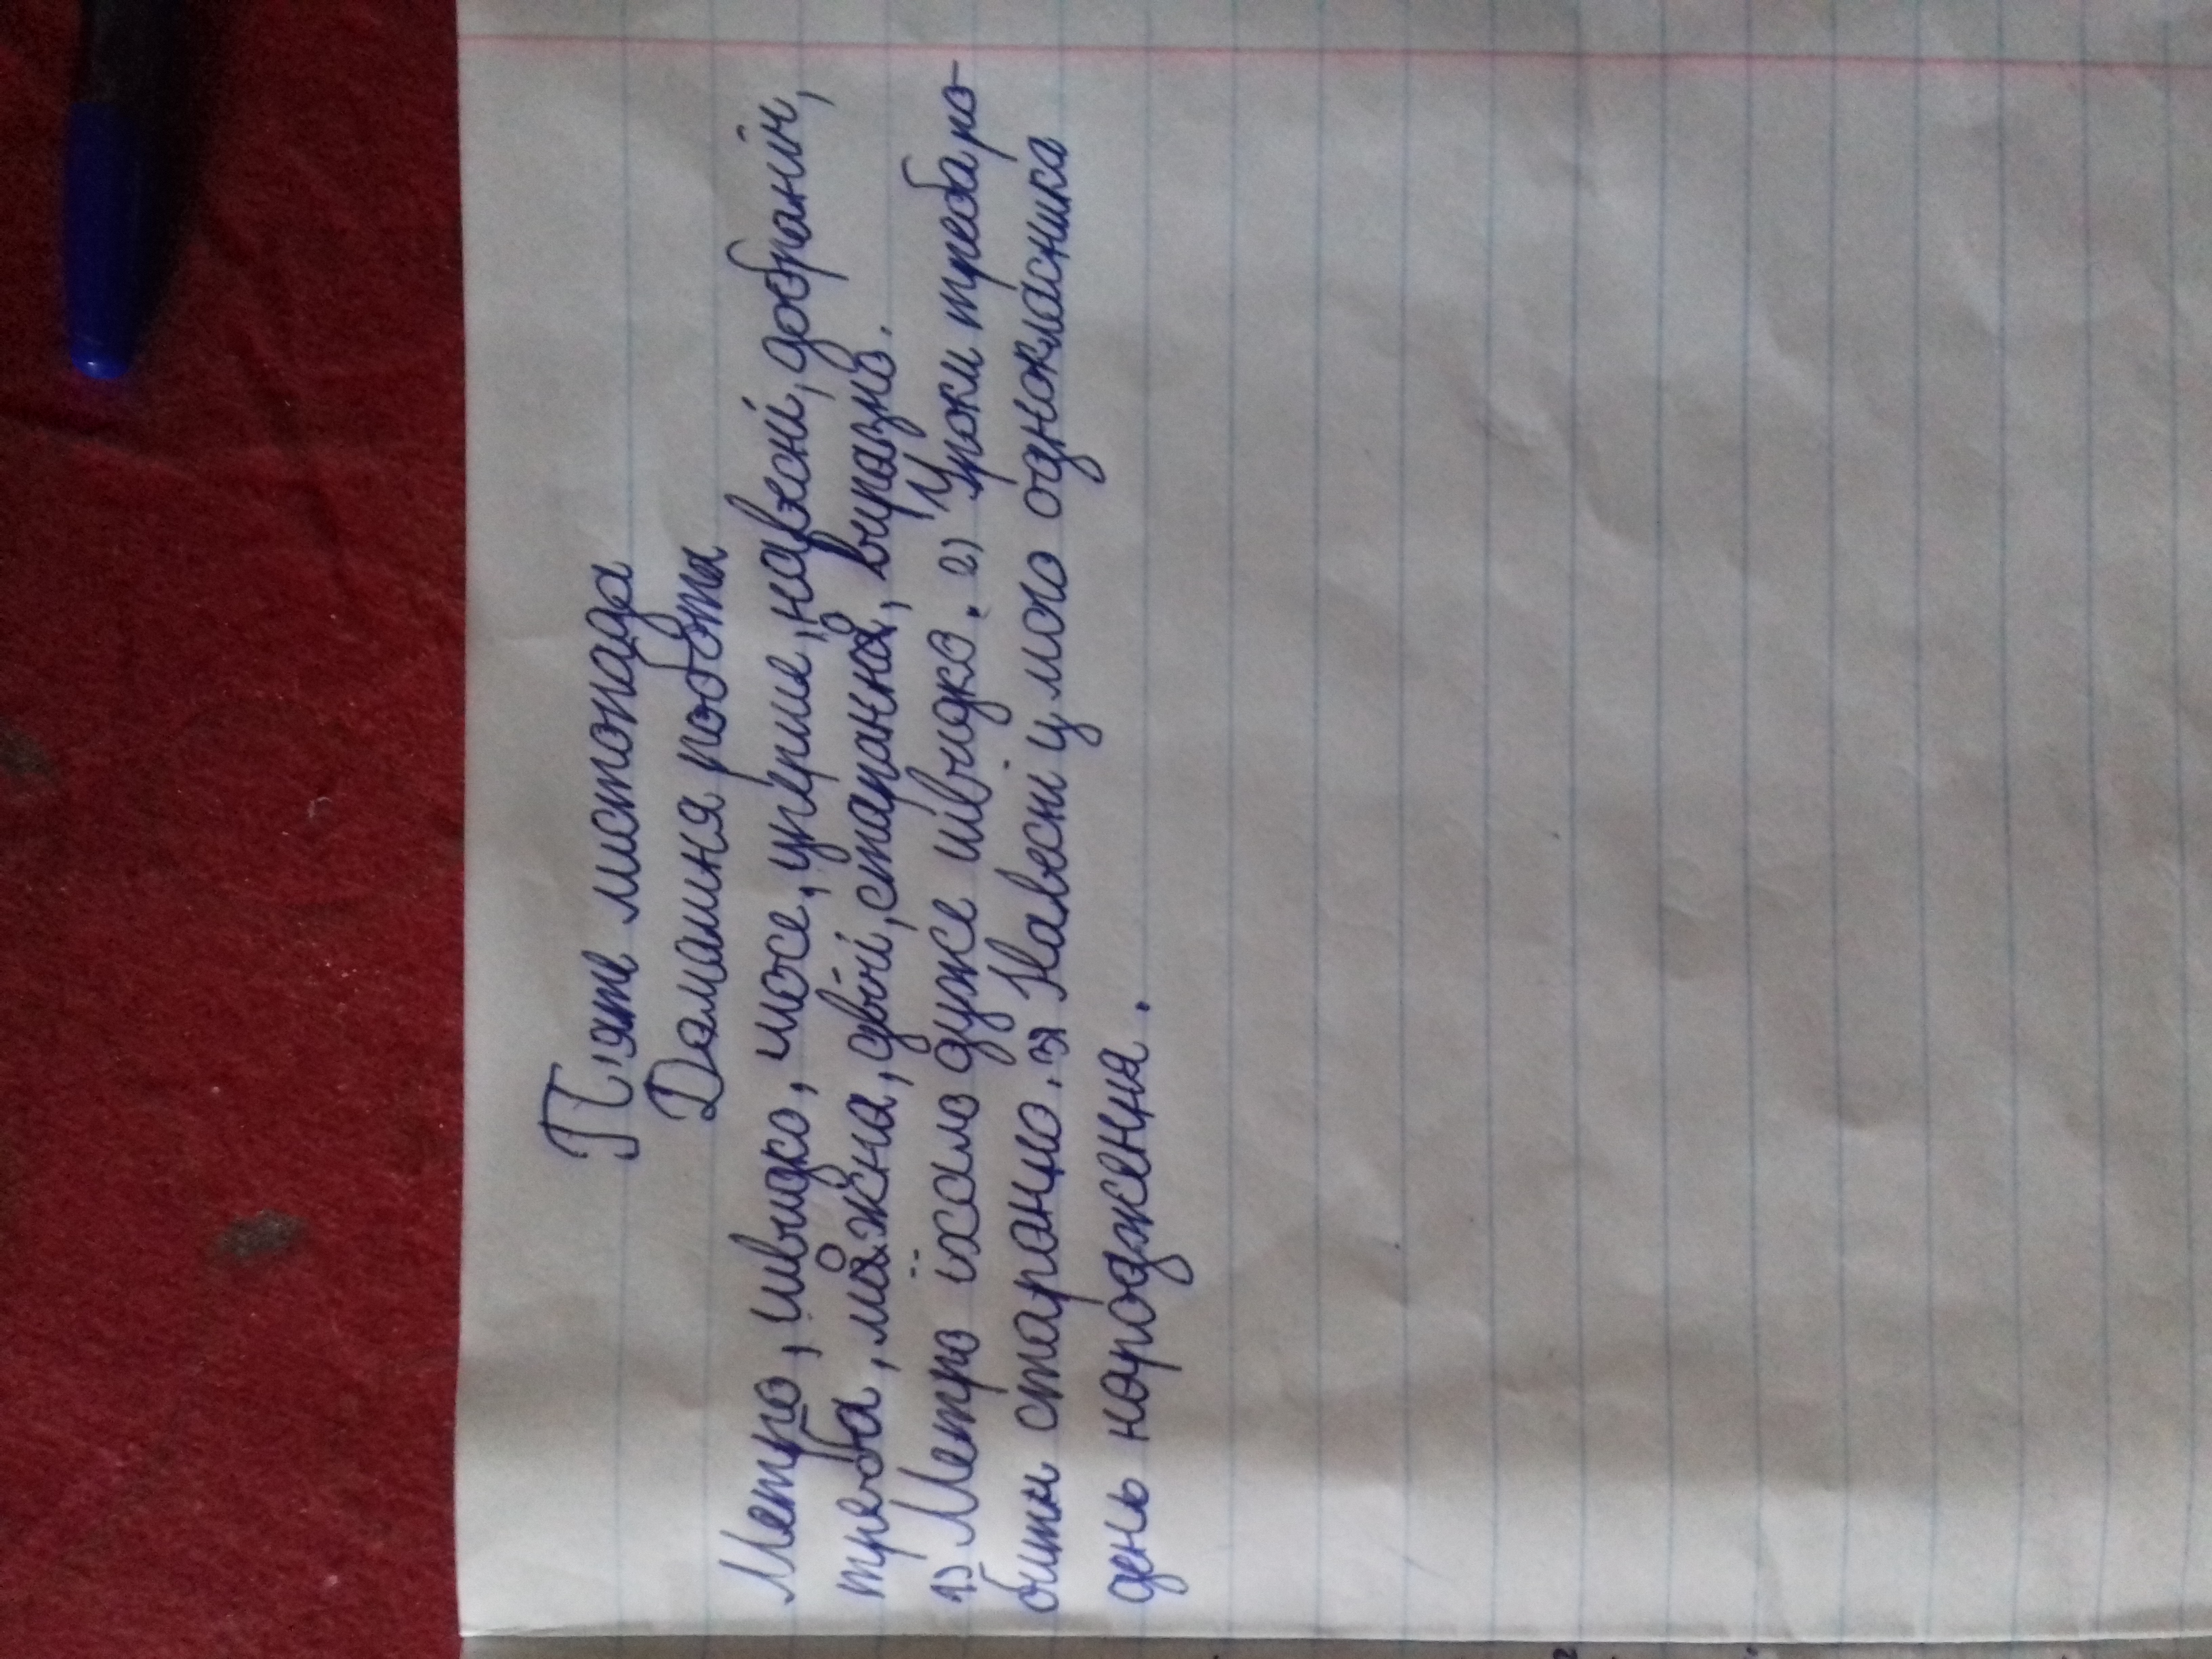 П'ять листопада
Домашня робота
Метро, швидко, шосе, уперше, навесні, добраніч,
треба, можна, двічі, старанно, виразно.
1) Метро їхало дуже швидко. 2) Уроки треба ро-
бити старанно. 3) Навесні у мого однокласника
день народження.